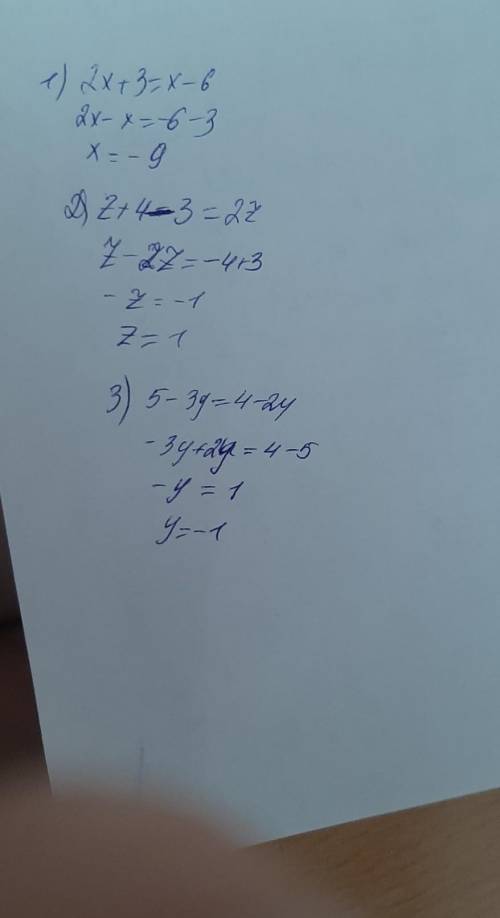 1) 2x+3=x-6
2x-x=-6-3
x=-9
2) z+4-3=2z
z-2z=-4+3
-z=-1
z=1
3) 5-3y=4-2y
-3y+2y=4-5
-y=1
y=-1